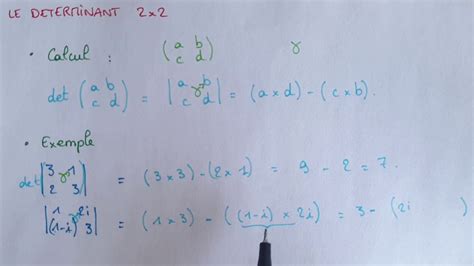 LE DETERMINANT 2x2
• Calcul : (a b / c d) γ
det (a b / c d) = |a b / c d| = (a x d) - (c x b).
• Exemple
det |3 1 / 2 3| = (3 x 3) - (2 x 1) = 9 - 2 = 7.
|1 2i / (1-i) 3| = (1 x 3) - ((1-i) x 2i) = 3 - (2i )